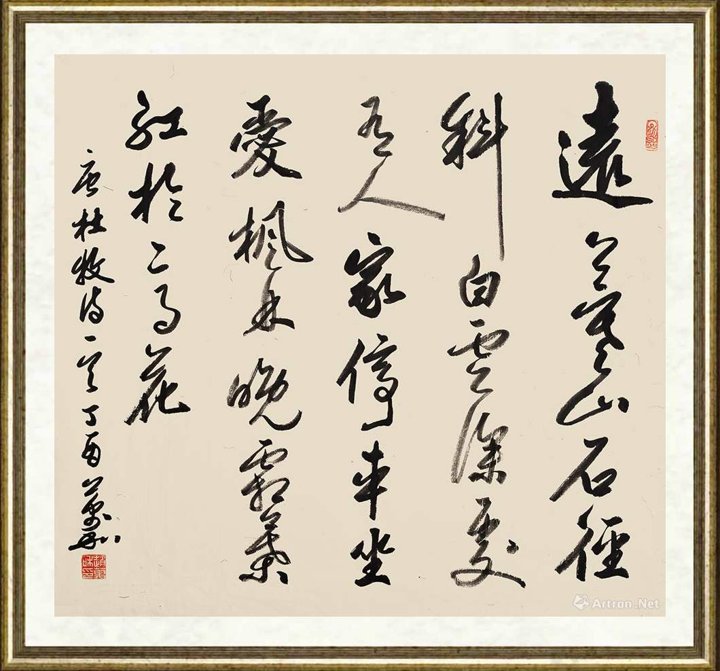 遠上寒山石徑
斜白雲深處
有人家停車坐
愛楓林晚霜葉
紅於二月花
唐杜牧诗一首丁酉
Artron.Net